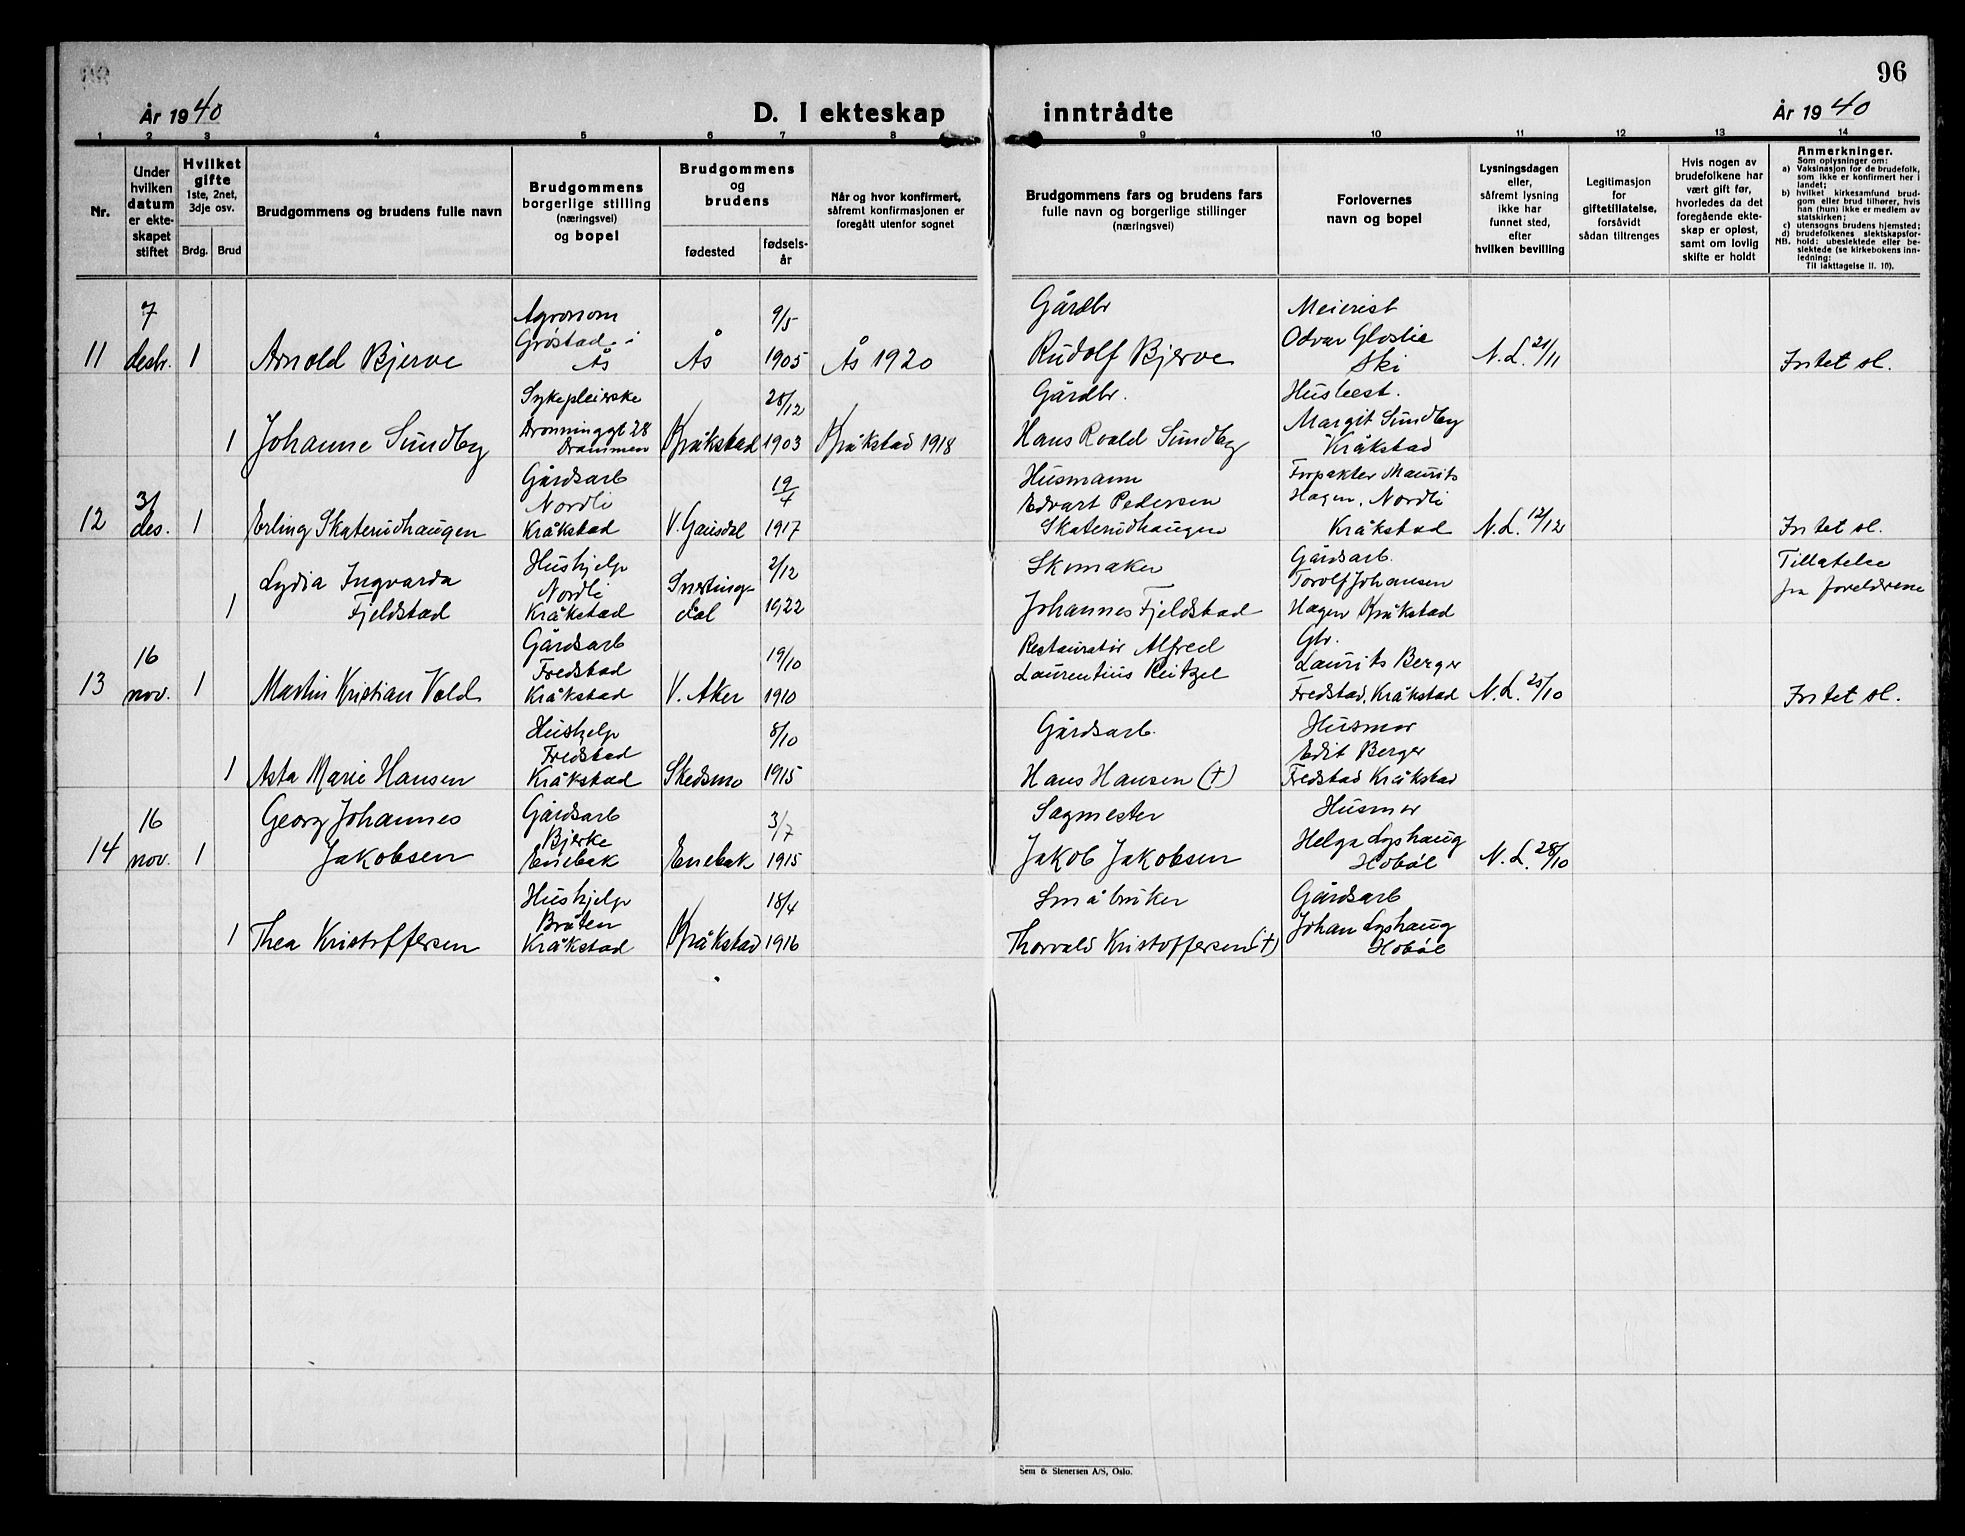 96
År 1940
D. I ekteskap inntrådte
År 1940
1 2 3 4 5 6 7 8 9 10 11 12 13 14
Nr.
Under hvilken datum er ekteskapet stiftet
Hvilket gifte 1ste, 2net, 3dje osv.
Brdg. Brud
Brudgommens og brudens fulle navn
Brudgommens borgerlige stilling (næringsvei) og bopel
Brudgommens og brudens
fødested
fødselsår
Når og hvor konfirmert, såfremt konfirmasjonen er foregått utenfor sognet
Brudgommens fars og brudens fars fulle navn og borgerlige stillinger (næringsvei)
Forlovernes navn og bopel
Lysningsdagen eller, såfremt lysning ikke har funnet sted, efter hvilken bevilling
Legitimasjon for giftetillatelse, forsåvidt sådan tiltrenges
Hvis nogen av brudefolkene har vært gift før, hvorledes da det foregående ekteskap er opløst, samt om lovlig skifte er holdt
Anmerkninger.
Som oplysninger om:
a) Vaksinasjon for de brudefolk, som ikke er konfirmert her i landet;
b) hvilket kirkesamfund brudgom eller brud tilhører, hvis han (hun) ikke er medlem av statskirken;
c) utensogns brudens hjemsted;
d) brudefolkenes slektskapsforhold: ubeslektede eller beslektede (se kirkebokens innledning:
NB.
Til iakttagelse II. 10).
11 7 desbr. 1 Arnold Bjerve Agronom Grøstad i Ås Ås 9/5 1905 Ås 1920 Gårdbr Rudolf Bjerve Meierist Odvar Glostie Ski N.L. 21/11 Intet sl.
1 Johanne Sundby Sykepleierske Dronninggt 28 Drammen Kråkstad 28/12 1903 Kråkstad 1918 Gårdbr. Hans Roald Sundby Husbest. Margit Sundby Kråkstad
12 31 des. 1 Erling Skaterudhaugen Gårdsarb Nordli Kråkstad V. Gausdal 19/4 1917 Husmann Edvart Pedersen Skaterudhaugen Forpakter Maurits Hagen, Nordli Kråkstad N.L. 12/12 Intet sl.
1 Lydia Ingvarda Fjeldstad Hushjelp Nordli Kråkstad Snertingdal 2/12 1922 Skomaker Johannes Fjeldstad Gårdsarb. Torolf Johansen Hagen Kråkstad Tillatelse fra foreldrene
13 16 nov. 1 Martin Kristian Vold Gårdsarb Fredstad Kråkstad V. Aker 19/10 1910 Restauratør Alfred Laurentius Reitzel Gbr. Laurits Berger Fredstad, Kråkstad N.L. 25/10 Intet sl.
1 Asta Marie Hansen Hushjelp Fredstad Kråkstad Skedsmo 8/10 1915 Gårdsarb. Hans Hansen (†) Husmor Edit Berger Fredstad Kråkstad
14 16 nov. 1 Georg Johannes Jakobsen Gårdsarb Bjerke Enebak Enebak 3/7 1915 Sagmester Jakob Jakobsen Husmor Helga Lyshaug Hobøl N.L. 28/10
1 Thea Kristoffersen Hushjelp Bråten Kråkstad Kråkstad 18/4 1916 Småbruker Thorvald Kristoffersen (†) Gårdsarb Johan Lyshaug Hobøl
Sem & Stenersen A/S, Oslo.